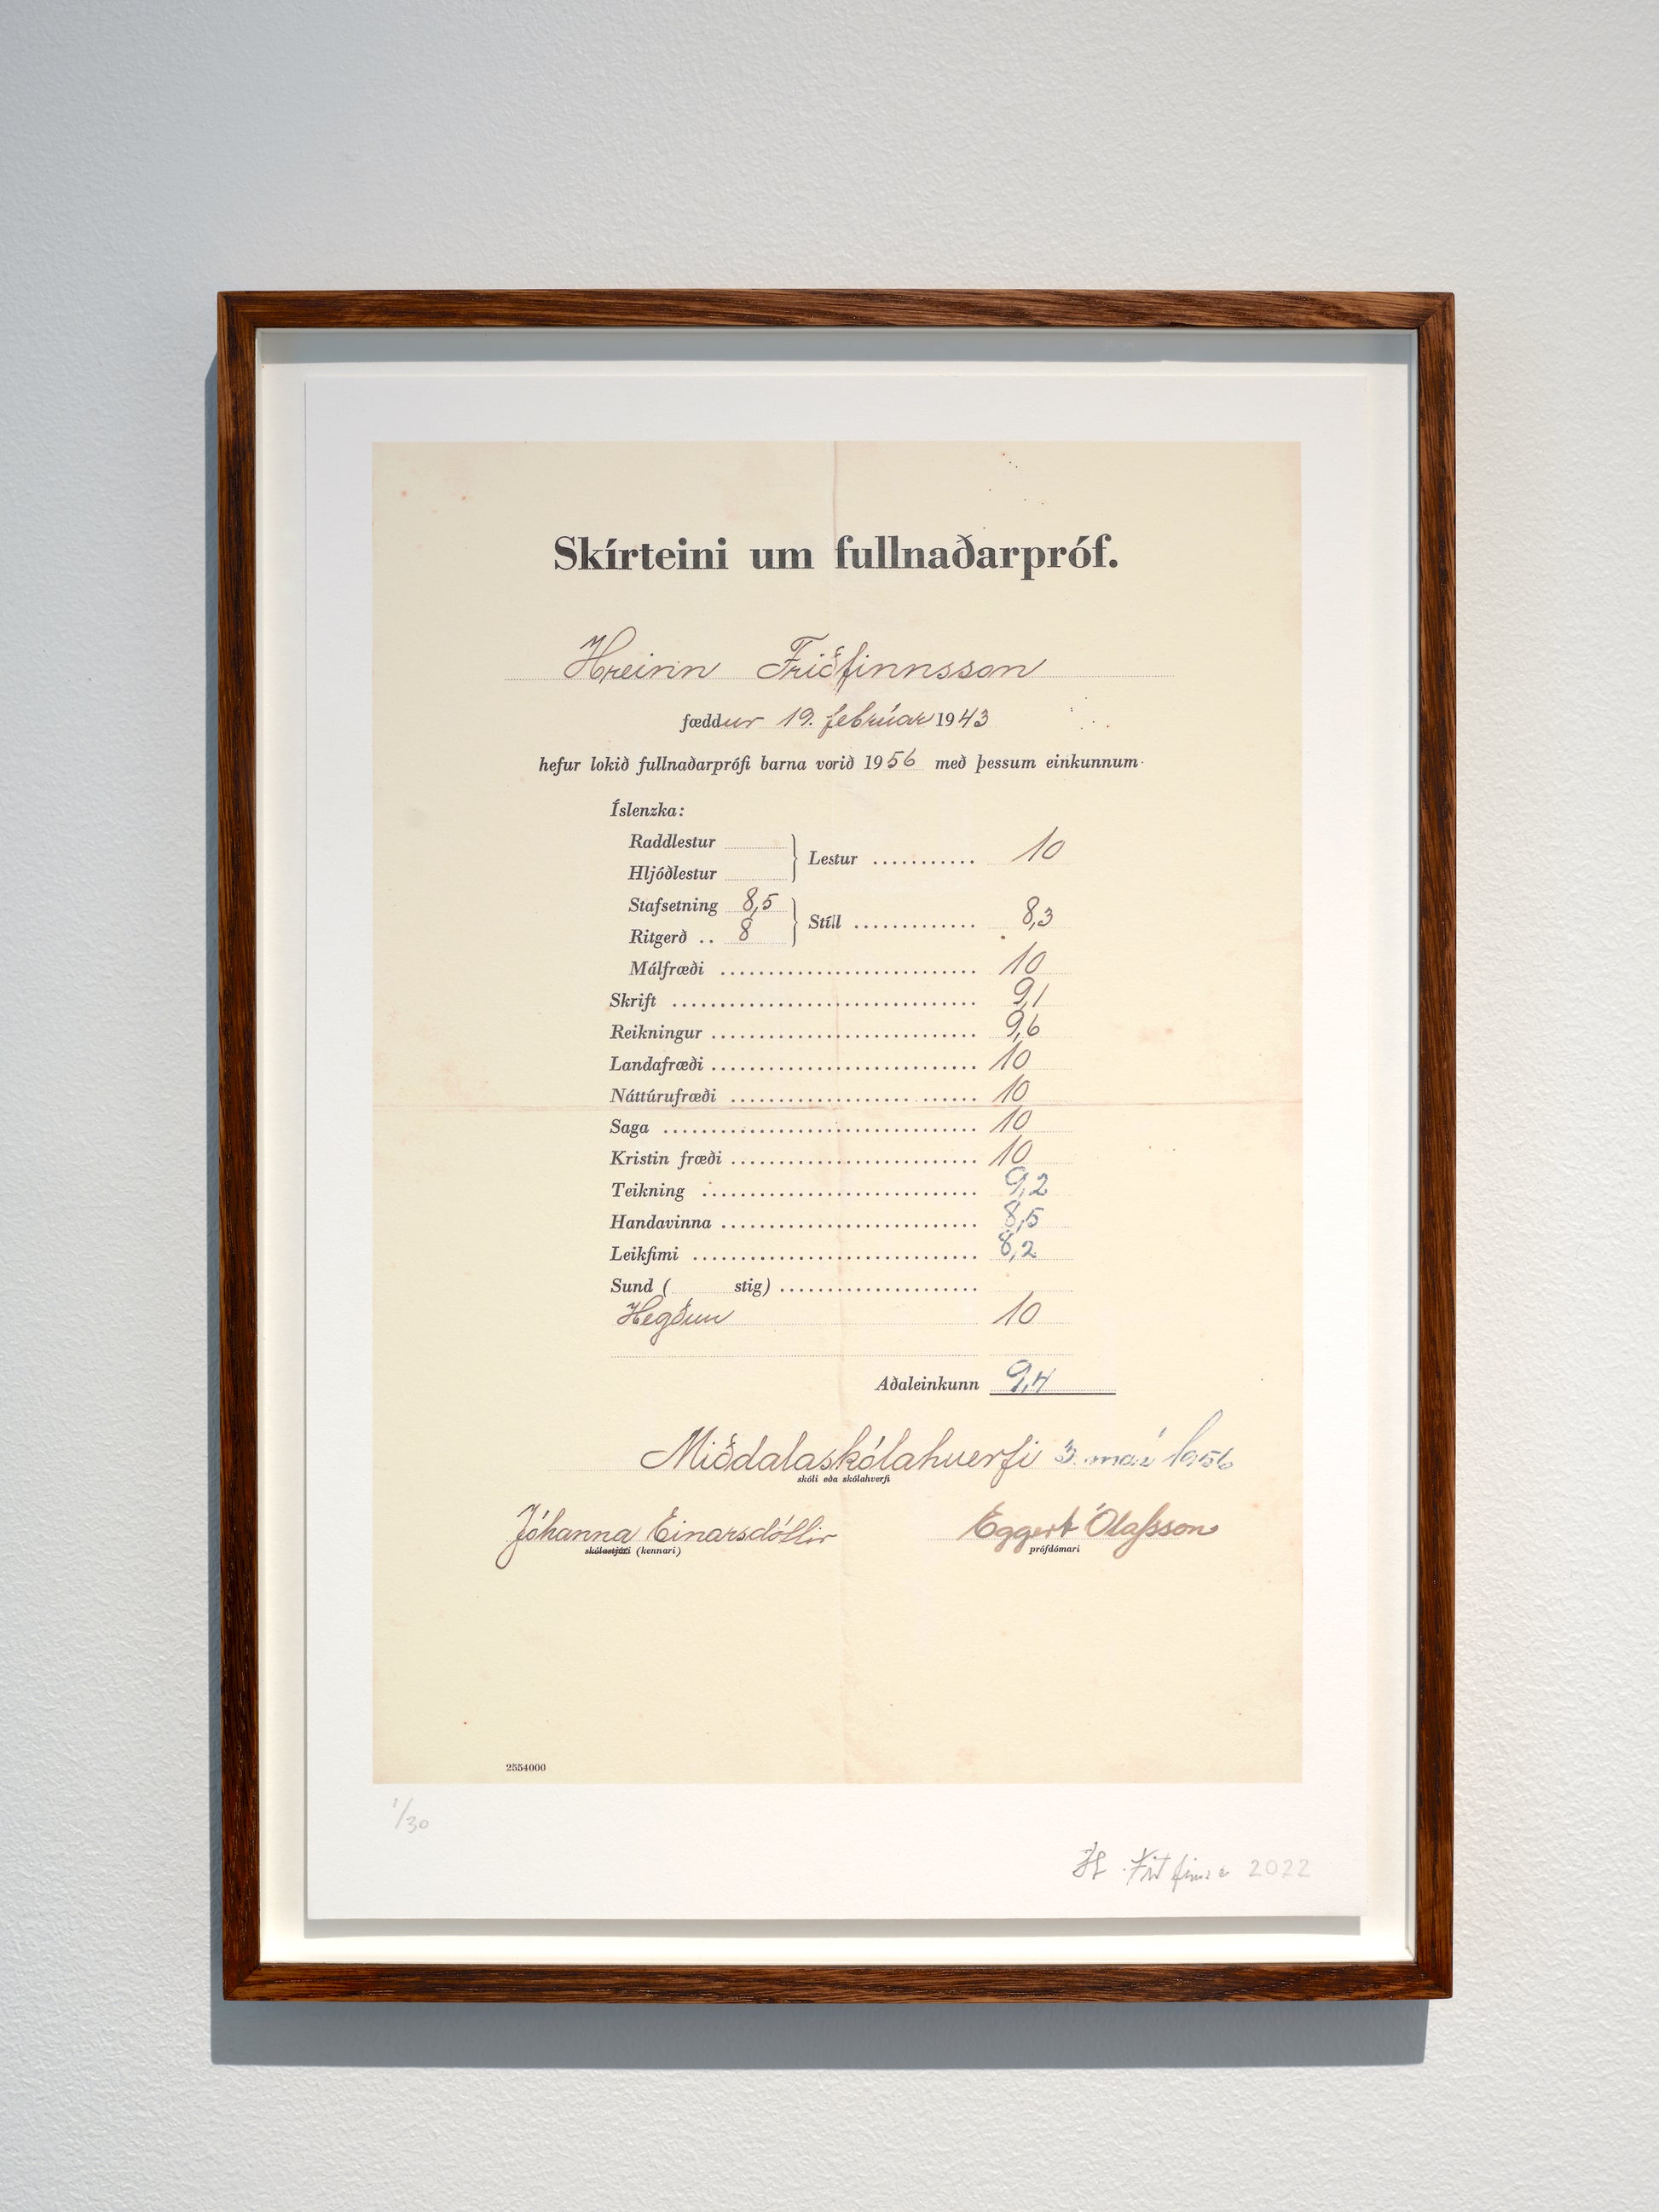 Skírteini um fullnaðarpróf.
Hreinn Friðfinnsson
fæddur 19. febrúar 1943
hefur lokið fullnaðarprófi barna vorið 1956 með þessum einkunnum
Íslenzka:
Raddlestur
Hljóðlestur
Lestur ........... 10
Stafsetning 8,5
Ritgerð .. 8
Stíll ............. 8,3
Málfræði ........................... 10
Skrift ................................ 9,1
Reikningur ............................ 9,6
Landafræði ............................ 10
Náttúrufræði .......................... 10
Saga ................................. 10
Kristin fræði .......................... 10
Teikning ............................. 9,2
Handavinna ........................... 8,5
Leikfimi .............................. 8,2
Sund ( stig) .....................
Hegðun 10
Aðaleinkunn 9,4
Miðdalaskólahverfi 3. maí 1956
skóli eða skólahverfi
Jóhanna Einarsdóttir Eggert Ólafsson
skólastjóri (kennari) prófdómari
2554000
1/30
2022